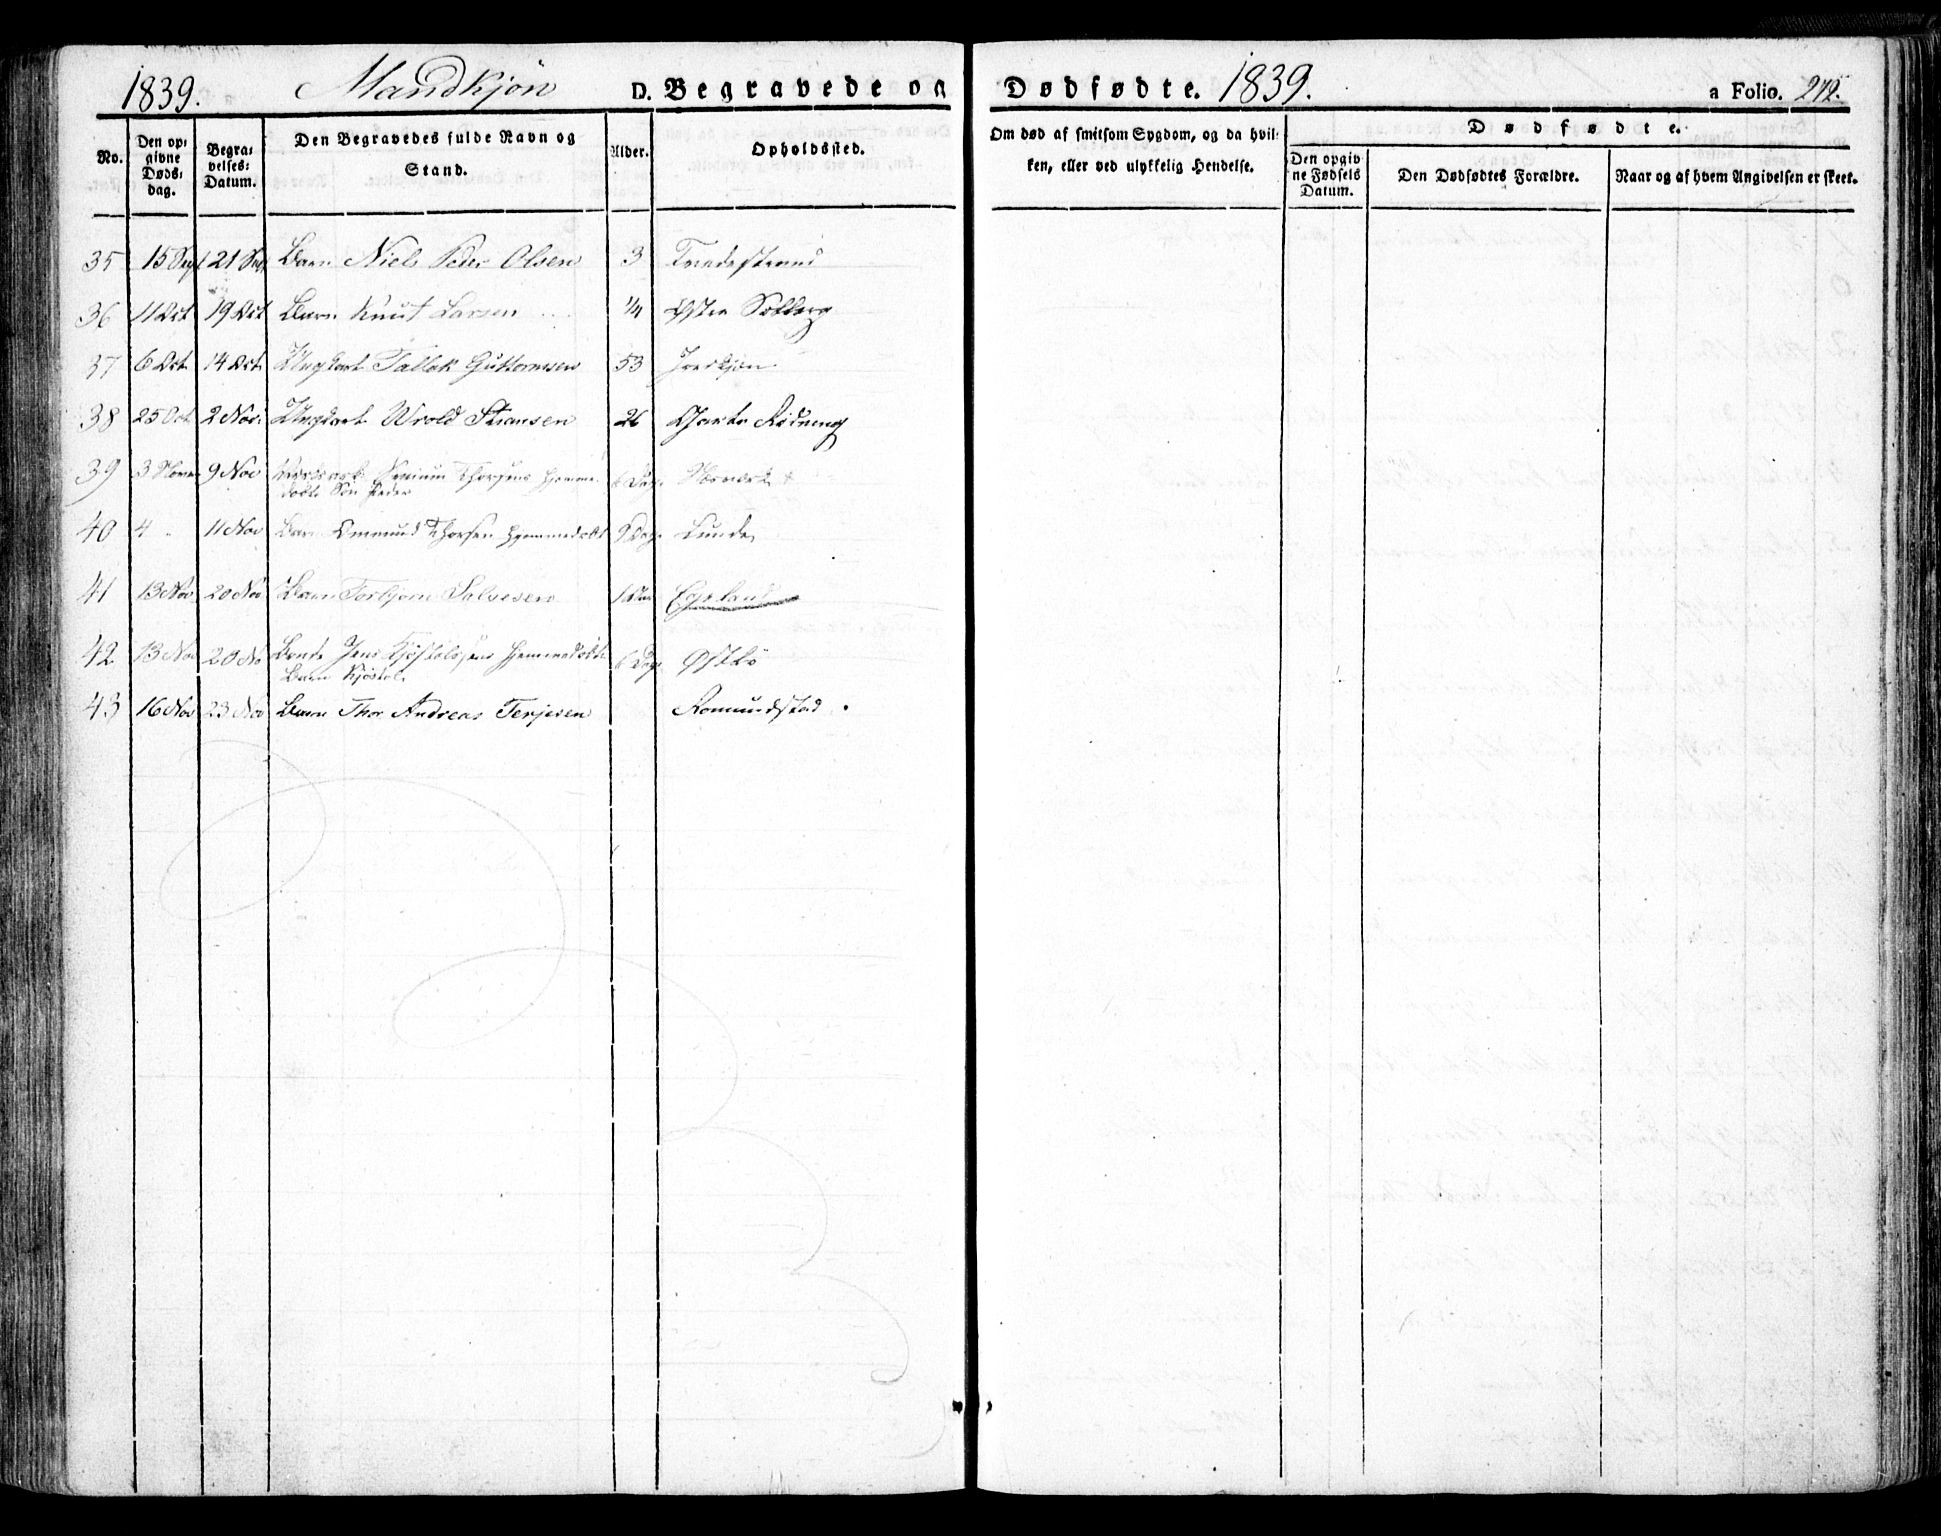 1839. Mandkjøn D. Begravede og Dødfødte. 1839. a Folio. 212.
No. Den opgivne Dødsdag. Begravelses-Datum. Den Begravedes fulde Navn og Stand. Alder. Opholdssted. Om død af smitsom Sygdom, og da hvilken, eller ved ulykkelig Hendelse. Dødfødte. Den opgivne Fødsels Datum. Den Dødfødtes Forældre. Naar og af hvem Angivelsen er skeet.
35 15 Sept 21 Sept Barn Niels Peder Olsen 3 Tvedestrand
36 11 Oct 19 Oct Barn Knut Larsen 1/4 Østre Solberg
37 6 Oct 14 Oct Ungkarl Tallak Guttormsen 53
38 25 Oct 2 Nov: Ungkarl Wrold Stiansen 26
39 3 9 Nov Thorsens Hjemmedøbte Søn Peder 6 Dage
40 4 " 11 Nov Barn Omund Thorsen Hjemmedøbt 9 Dage Lunde
41 13 Nov 20 Nov Barn Torbjørn Salvesen Egeland
42 13 Nov 20 No Jens Kjøstolvsens Hjemmedøbte
Barn Kjøstol 6 Dage Østbø
43 16 Nov 23 Nov Barn Thor Andreas Terjesen Romundstad